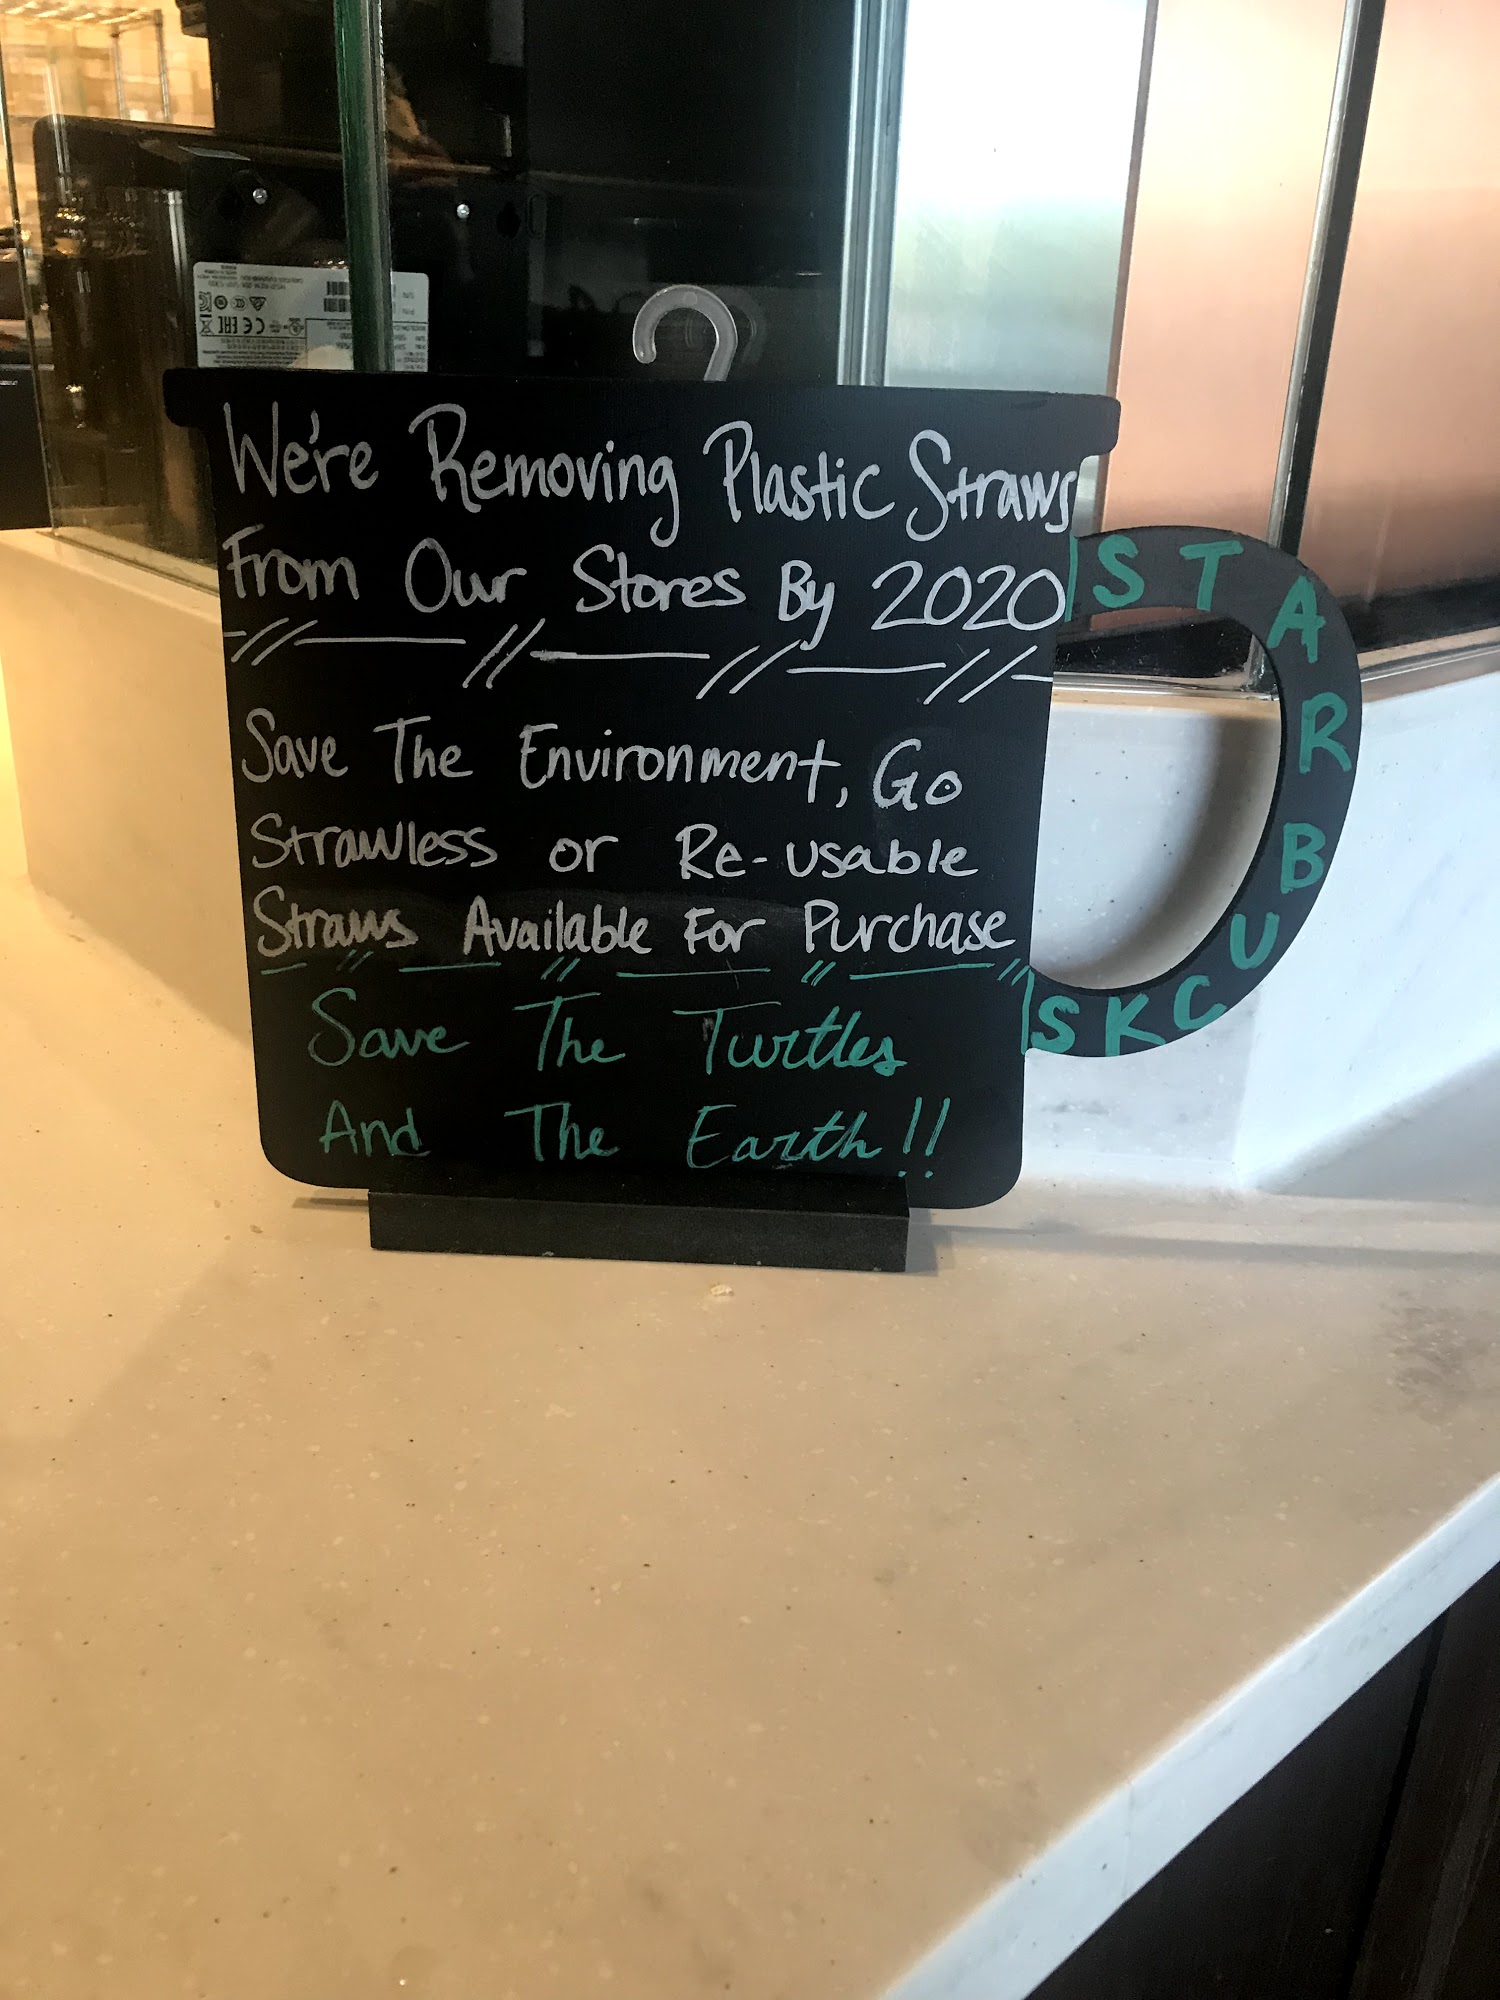 We're Removing Plastic Straws
From Our Stores By 2020
Save The Environment, Go
Strawless or Re-usable
Straws Available For Purchase
Save The Turtles
And The Earth!!
STARBUCKS